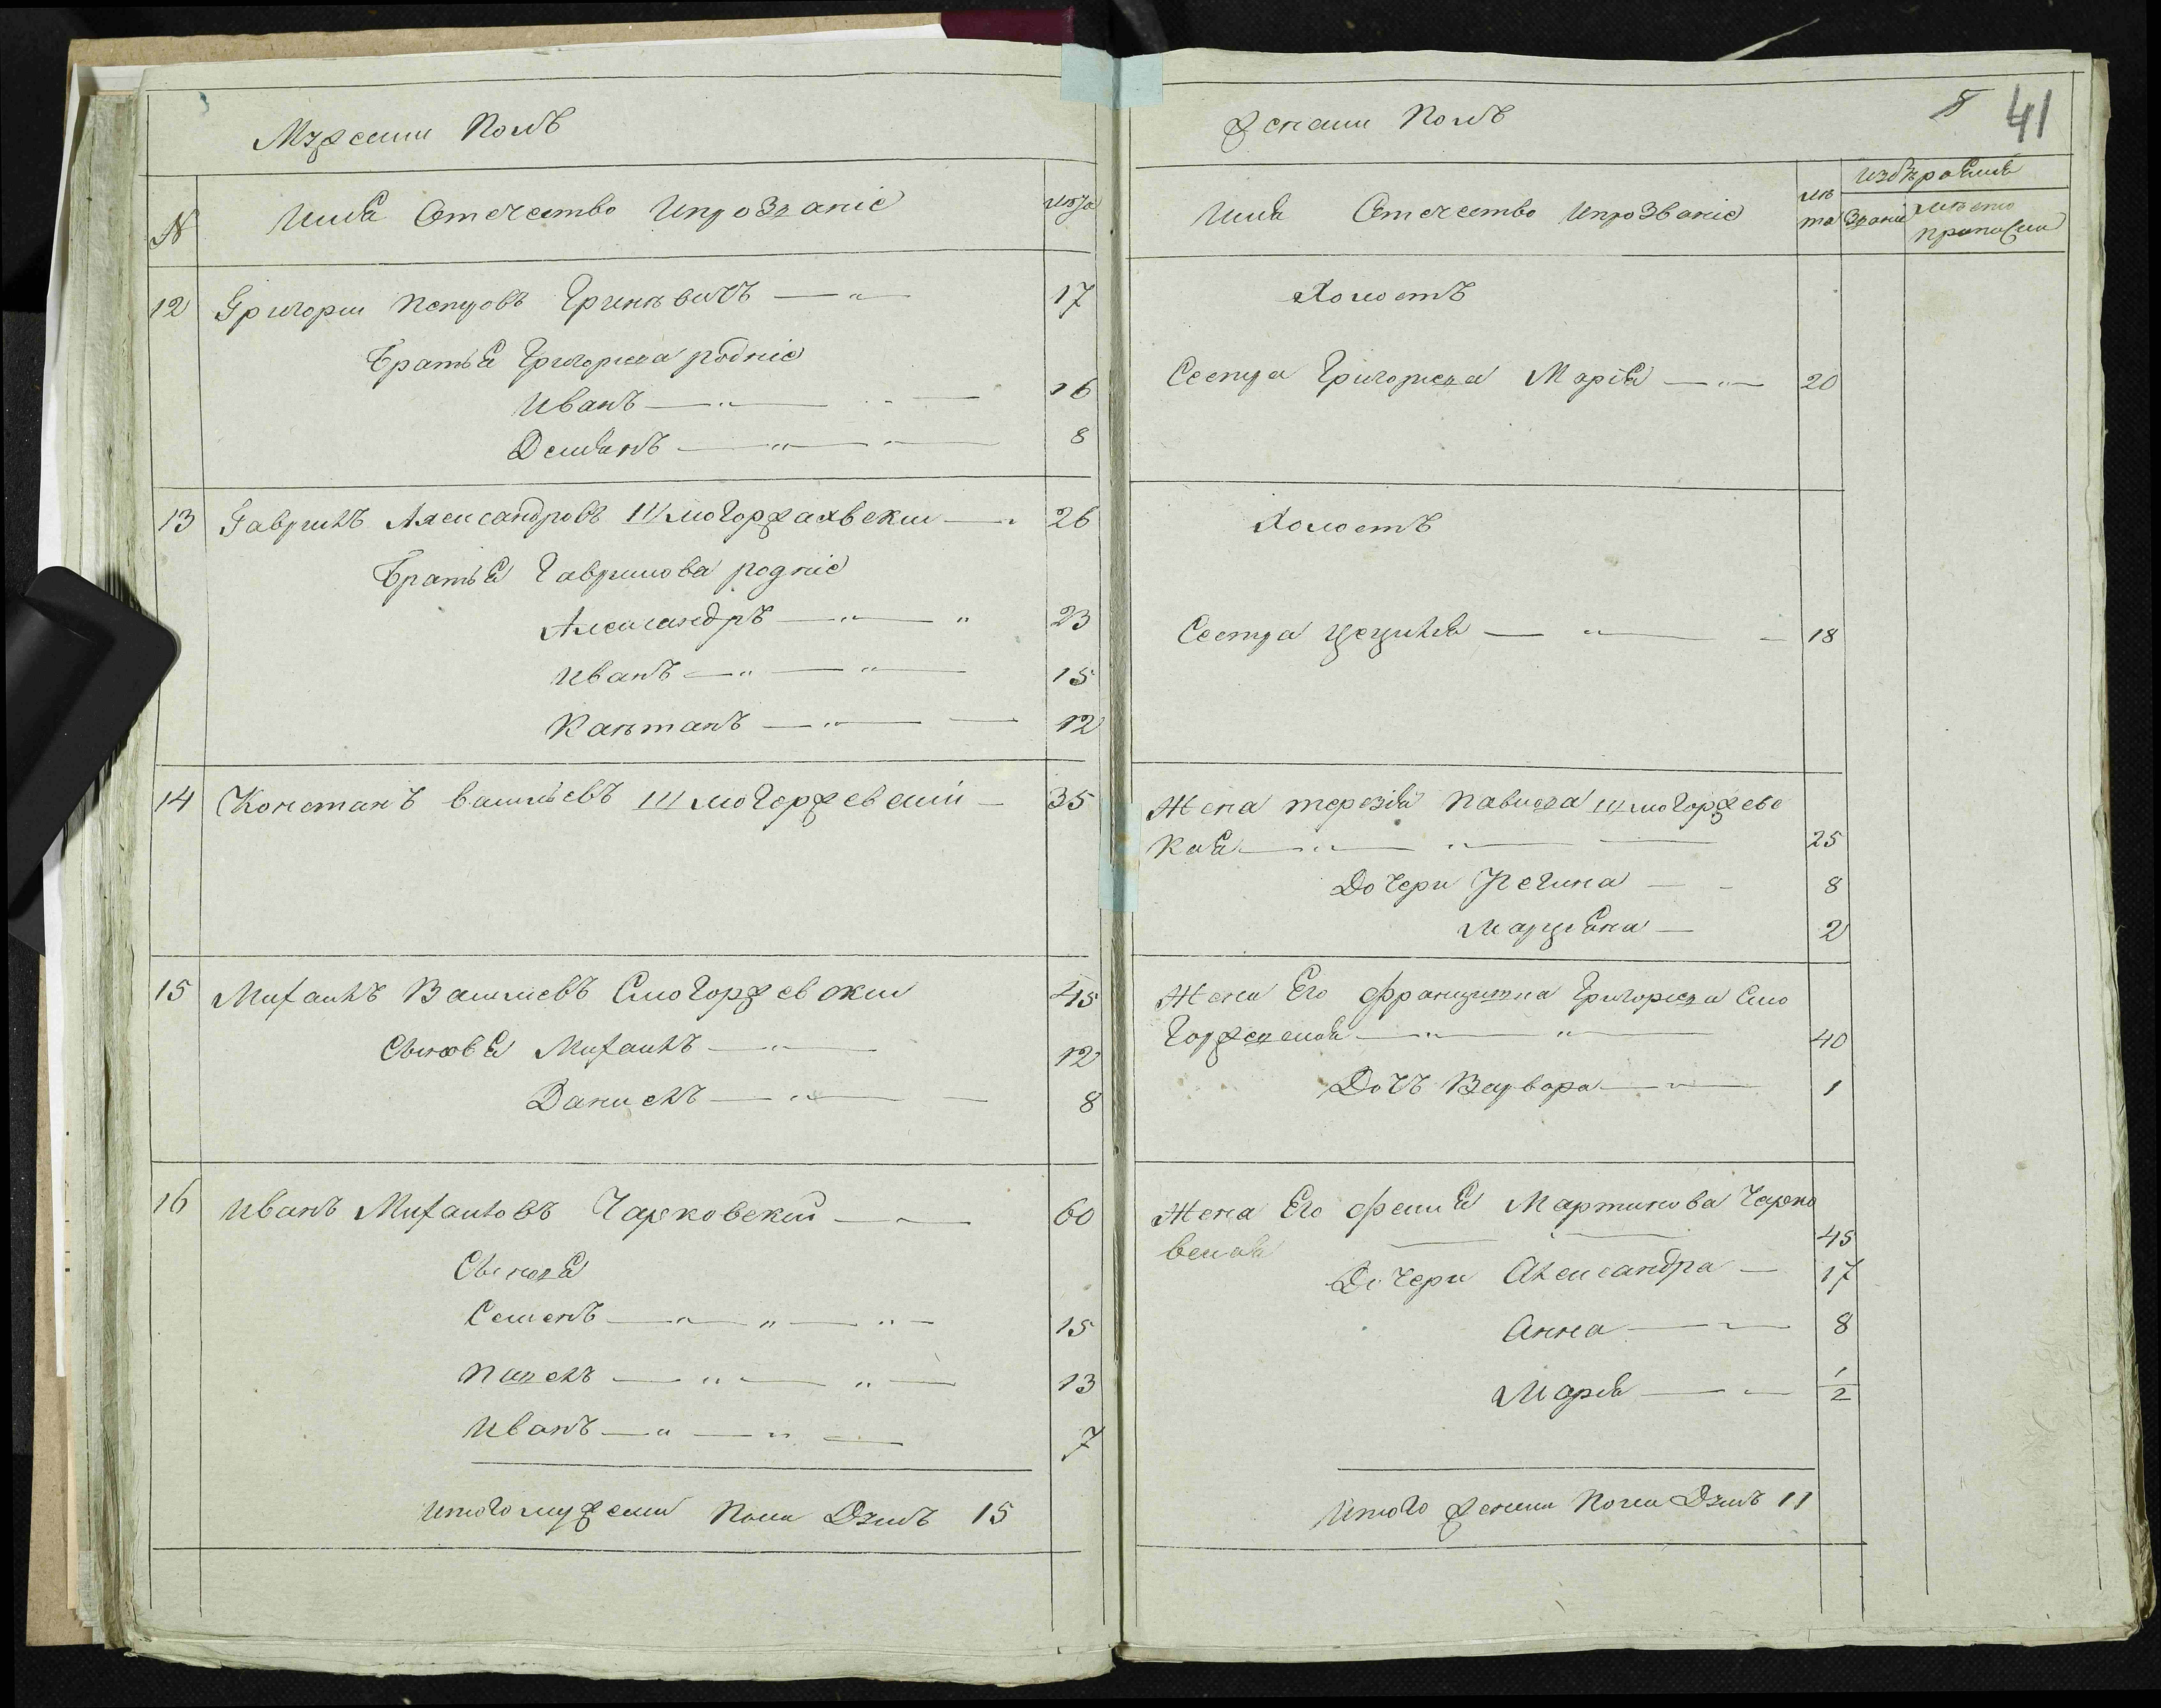 Мужескии Полъ
N Имя Отечество Ипрозваніе лѣта
12 Григории Петровъ Гриневичъ 17
Братья Григориева родніе
Иванъ 16
Демянъ 8
13 Гаврилъ Александровъ Шмогоржевскии 26
Братья Гаврилова родніе
Александръ 23
Иванъ 15
Каетанъ 12
14 Констанъ василіевъ Шмогоржевскии 35
15 Михаилъ Василиевъ Смогоржевскии 45
Сыновья Михаилъ 12
Даниелъ 8
16 Иванъ Михаиловъ Чарковский 60
Сыновя
Семенъ 15
Павелъ 13
Иванъ 7
Итого мужеска Пола Душъ 15
5 41
Женски Полъ
Имя Отечество Ипрозваніе лѣта Званіе
Холостъ
Сестра Григориева Марія 20
Холостъ
Сестра Цецилія 18
Жена терезія Павлова Шмогоржевс
Кая 25
Дочери Регина 8
Марцяна 2
Жена Его Францишка Григориева Смо
горжевская 40
Дочъ Варвара 1
Жена Его Фекля Мартинова Чарко
вская 45
Дочери Александра 17
Анна 8
Марія 1/2
Итого женска Пола Душъ 11